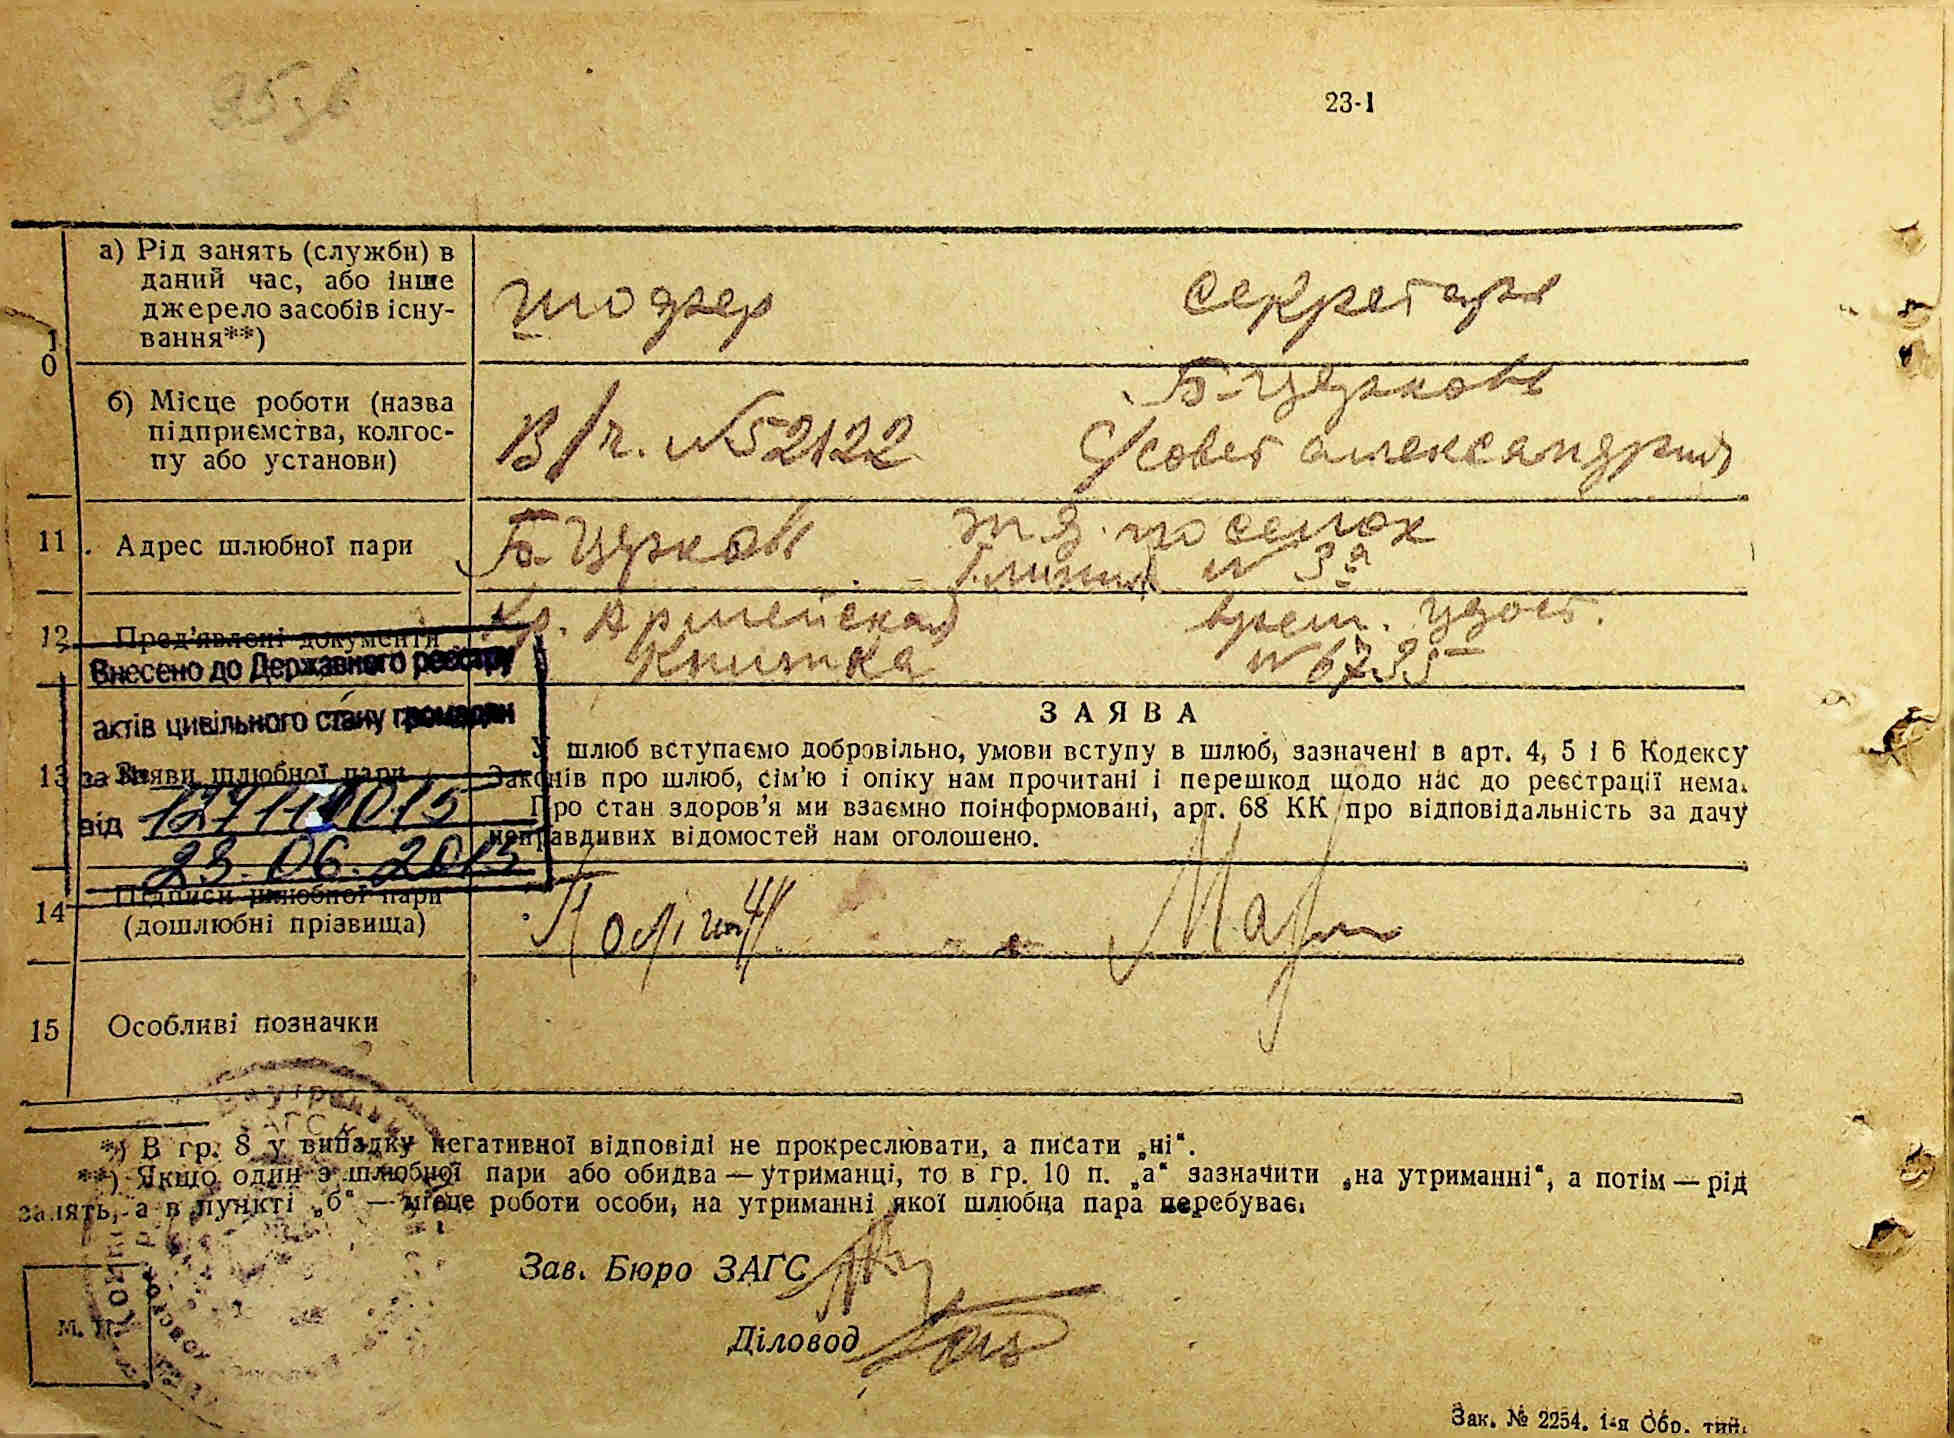 23-1
а) Рід занять (служби) в
даний час, або інше
джерело засобів існу-
вання**)
шофер
секретарь
10
б) Місце роботи (назва
підприємства, колгос-
пу або установи)
В/ч. №52122
Б-Церковь
С/совет Александрия
11. Адрес шлюбної пари
Б-Церковь
поселок
линия № 3а
12 Пред'явлені документи
Кр. Армейская
книжка
врем. удост.
№ 6735
Внесено до Державного реєстру
актів цивільного стану громадян
за №
від
23.06.2015
13 Заяви шлюбної пари
ЗАЯВА
У шлюб вступаємо добровільно, умови вступу в шлюб, зазначені в арт. 4, 5 і 6 Кодексу
Законів про шлюб, сім'ю і опіку нам прочитані і перешкод щодо нас до реєстрації нема.
Про стан здоров'я ми взаємно поінформовані, арт. 68 КК про відповідальність за дачу
неправдивих відомостей нам оголошено.
14 Підписи шлюбної пари
(дошлюбні прізвища)
15 Особливі позначки
*) В гр. 8 у випадку негативної відповіді не прокреслювати, а писати „ні“.
**) Якщо один з шлюбної пари або обидва — утриманці, то в гр. 10 п. „а“ зазначити „на утриманні“, а потім — рід
занять, а в пункті „б“ — місце роботи особи, на утриманні якої шлюбна пара перебуває.
Зав. Бюро ЗАГС
Діловод
М. П.
Зак. № 2254. 1-я Обр. тип.